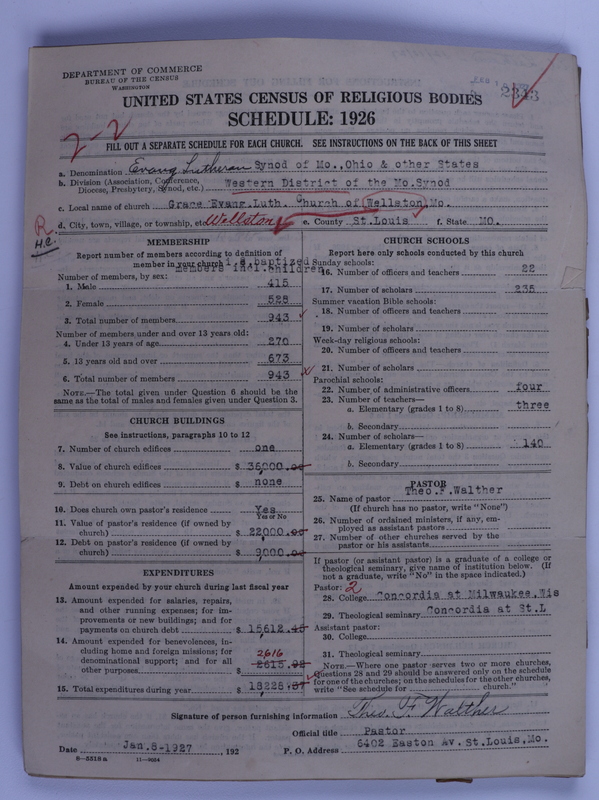 DEPARTMENT OF COMMERCE
BUREAU OF THE CENSUS
WASHINGTON
2343
UNITED STATES CENSUS OF RELIGIOUS BODIES
SCHEDULE: 1926
2-2
FILL OUT A SEPARATE SCHEDULE FOR EACH CHURCH. SEE INSTRUCTIONS ON THE BACK OF THIS SHEET
a. Denomination Evang Lutheran Synod of Mo., Ohio & other States
b. Division (Association, Conference, Diocese, Presbytery, Synod, etc.) Western District of the Mo.Synod
c. Local name of church Grace Evang.Luth. Church of (Wellston) Mo.
d. City, town, village, or township, etc. Wellston e. County St.Louis f. State MO.
R.
H.C.
MEMBERSHIP
Report number of members according to definition of
member in your church i.e. baptized
members incl. children
Number of members, by sex:
1. Male 415
2. Female 528
3. Total number of members 943
Number of members under and over 13 years old:
4. Under 13 years of age 270
5. 13 years old and over 673
6. Total number of members 943
NOTE.—The total given under Question 6 should be the
same as the total of males and females given under Question 3.
CHURCH BUILDINGS
See instructions, paragraphs 10 to 12
7. Number of church edifices one
8. Value of church edifices $ 35,000.00
9. Debt on church edifices $ none
10. Does church own pastor's residence Yes
Yes or No
11. Value of pastor's residence (if owned by
church) $ 22,000.00
12. Debt on pastor's residence (if owned by
church) $ 9,000.00
EXPENDITURES
Amount expended by your church during last fiscal year
13. Amount expended for salaries, repairs,
and other running expenses; for im-
provements or new buildings; and for
payments on church debt $ 15,612.45
14. Amount expended for benevolences, in-
cluding home and foreign missions; for
denominational support; and for all
other purposes $ 2615.92
2616
15. Total expenditures during year $ 18,228.37
CHURCH SCHOOLS
Report here only schools conducted by this church
Sunday schools:
16. Number of officers and teachers 22
17. Number of scholars 235
Summer vacation Bible schools:
18. Number of officers and teachers
19. Number of scholars
Week-day religious schools:
20. Number of officers and teachers
21. Number of scholars
Parochial schools:
22. Number of administrative officers four
23. Number of teachers—
a. Elementary (grades 1 to 8) three
b. Secondary
24. Number of scholars—
a. Elementary (grades 1 to 8) 140
b. Secondary
PASTOR
25. Name of pastor Theo.F.Walther
(If church has no pastor, write "None")
26. Number of ordained ministers, if any, em-
ployed as assistant pastors
27. Number of other churches served by the
pastor or his assistants
If pastor (or assistant pastor) is a graduate of a college or
theological seminary, give name of institution below. (If
not a graduate, write "No" in the space indicated.)
Pastor: 2
28. College Concordia at Milwaukee,Wis
29. Theological seminary Concordia at St.L
Assistant pastor:
30. College
31. Theological seminary
NOTE.—Where one pastor serves two or more churches,
Questions 28 and 29 should be answered only on the schedule
for one of the churches; on the schedules for the other churches,
write "See schedule for church."
Signature of person furnishing information Theo. F. Walther
Official title Pastor
Date Jan.8-1927, 192 P. O. Address 6402 Easton Av. St.Louis, Mo.
8—5518a 11—9054